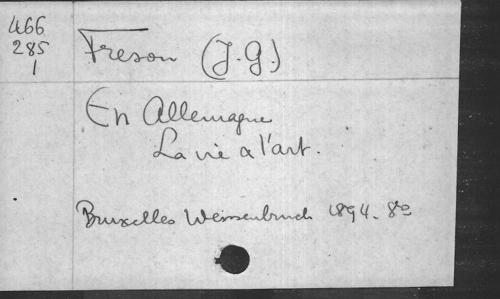 466
285
1
Freson (J.G.)
En Allemagne
La vie a l'art.
Bruxelles Weissenbruch 1894. 8º